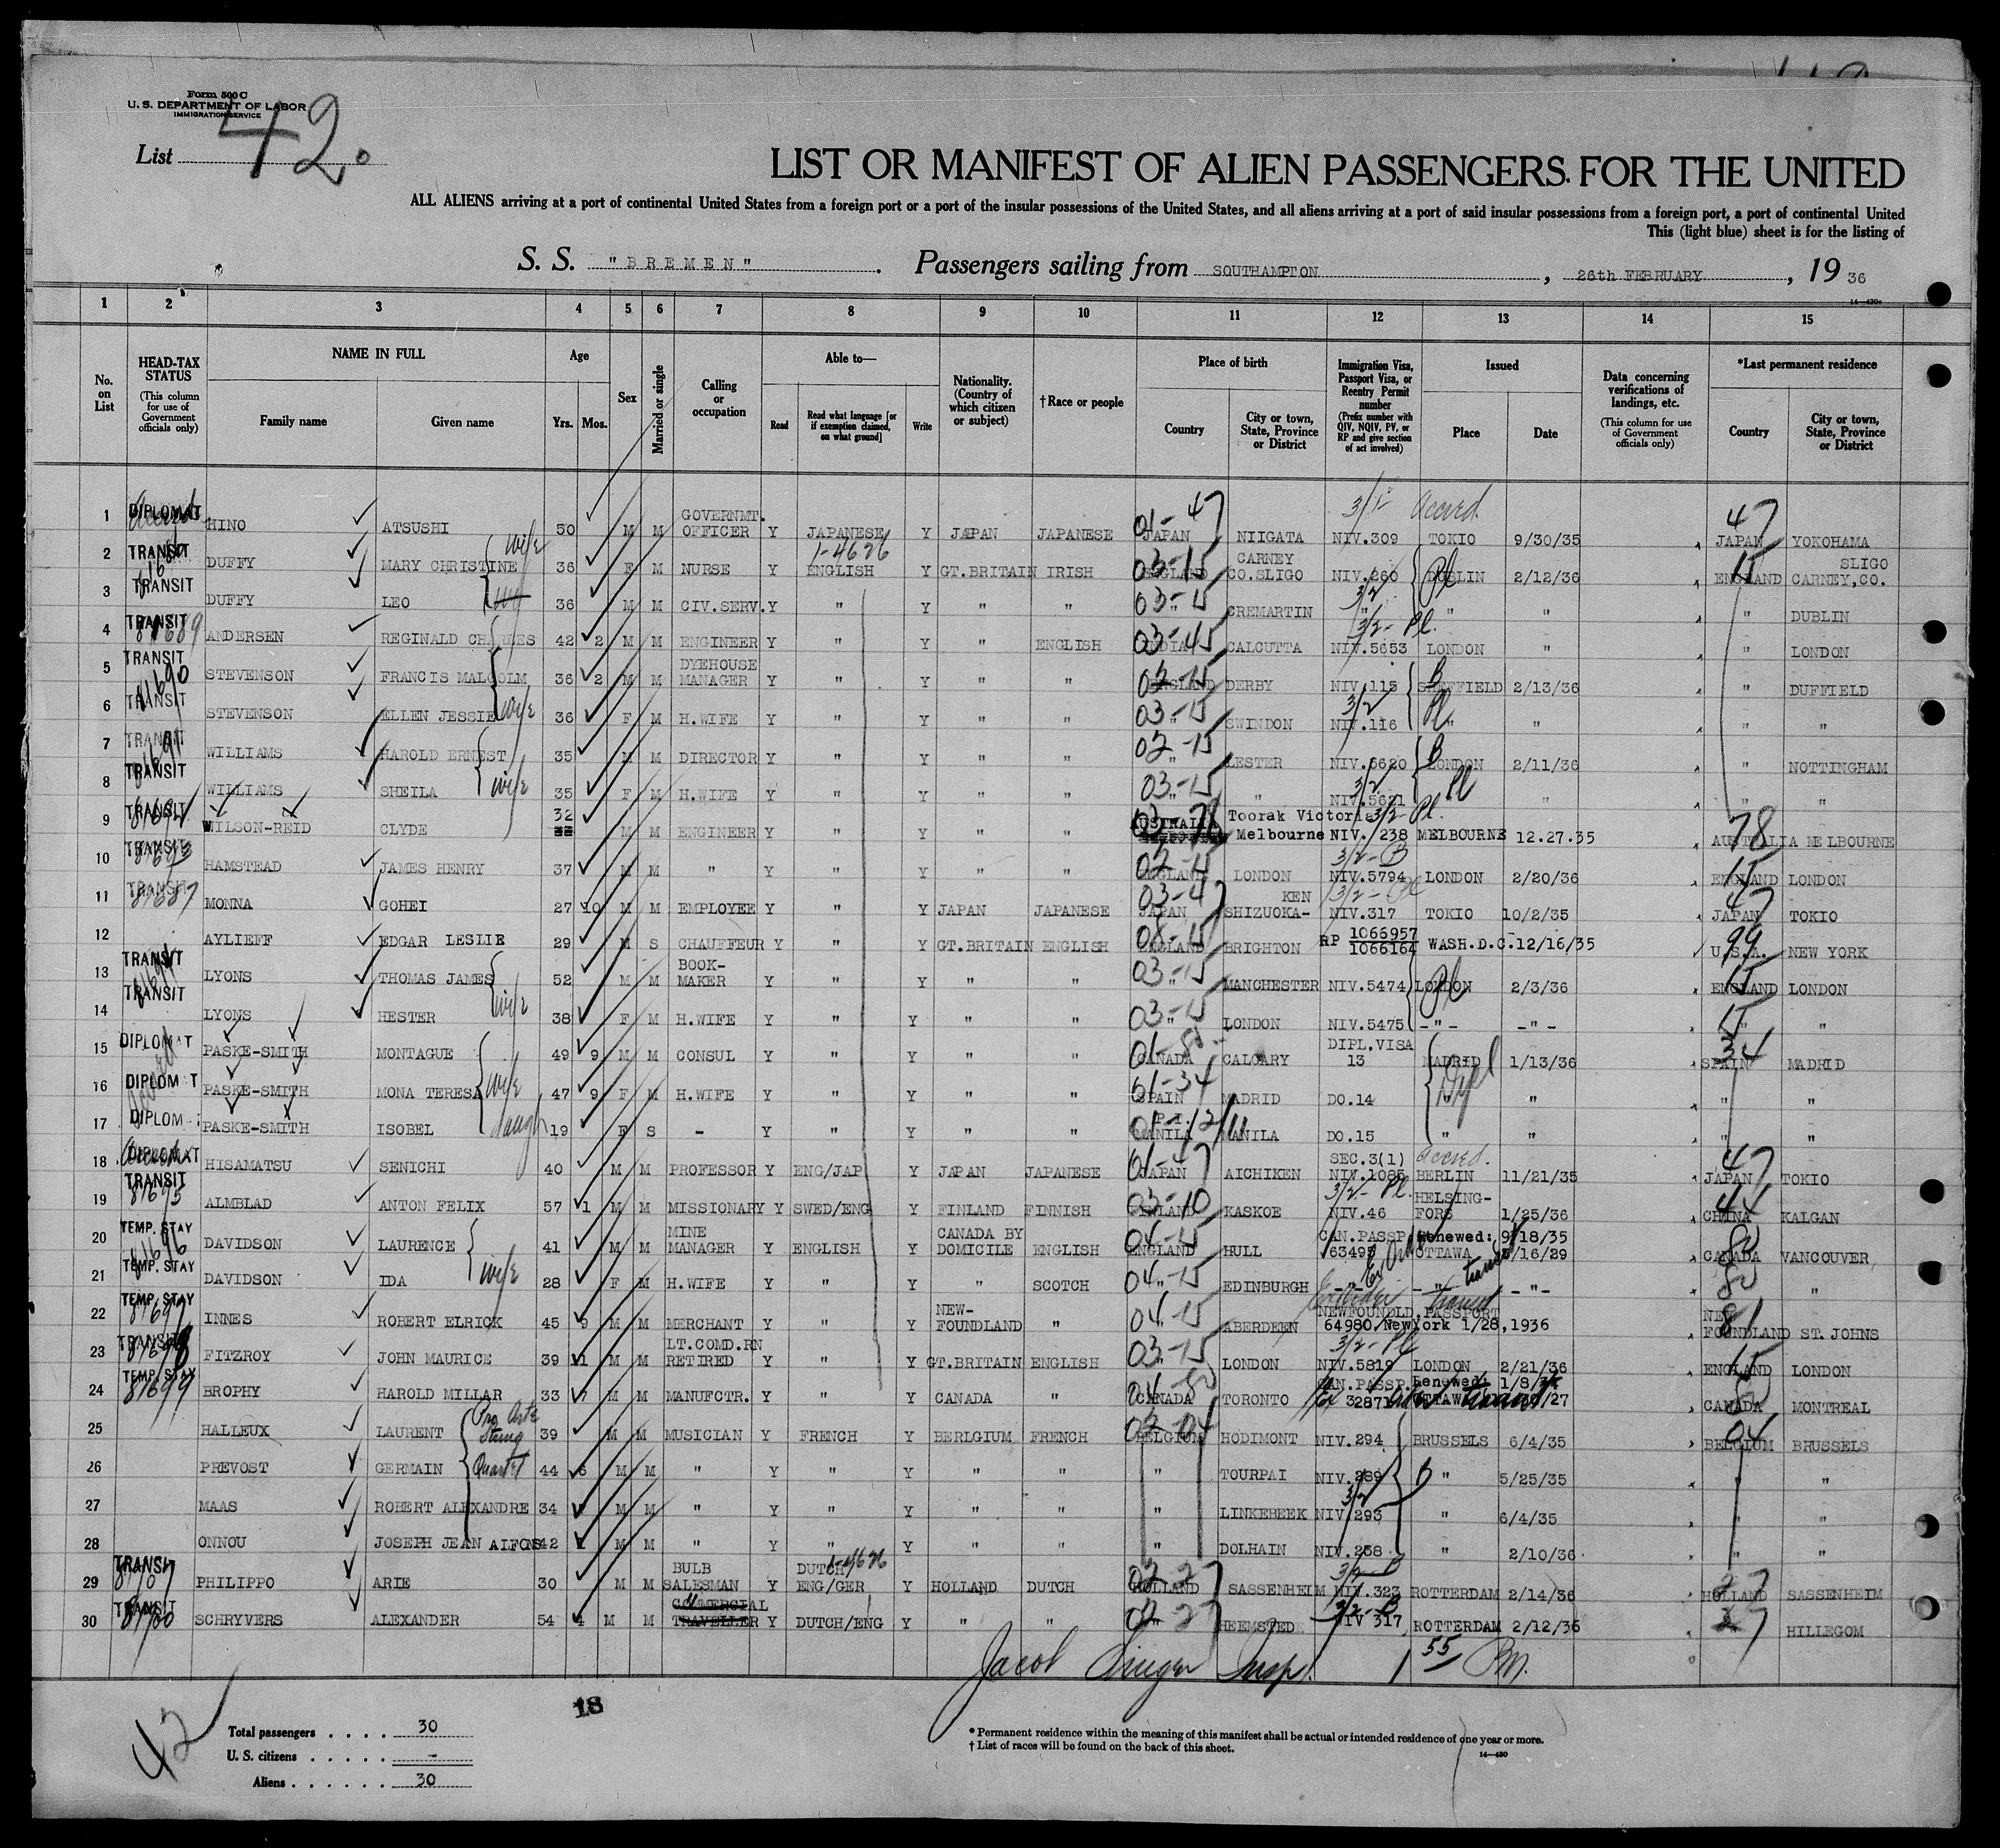 Form 500 C
U. S. DEPARTMENT OF LABOR
IMMIGRATION SERVICE
List 42
LIST OR MANIFEST OF ALIEN PASSENGERS FOR THE UNITED
ALL ALIENS arriving at a port of continental United States from a foreign port or a port of the insular possessions of the United States, and all aliens arriving at a port of said insular possessions from a foreign port, a port of continental United
This (light blue) sheet is for the listing of
S. S. "BREMEN". Passengers sailing from SOUTHAMPTON, 26th FEBRUARY, 19 36
14—430
1 2 3 4 5 6 7 8 9 10 11 12 13 14 15
No. on List
HEAD-TAX STATUS (This column for use of Government officials only)
NAME IN FULL Family name Given name
Age Yrs. Mos.
Sex
Married or single
Calling or occupation
Able to— Read Read what language [or if exemption claimed, on what ground] Write
Nationality. (Country of which citizen or subject)
†Race or people
Place of birth Country City or town, State, Province or District
Immigration Visa, Passport Visa, or Reentry Permit number (Prefix number with QIV, NQIV, PV, or RP and give section of act involved)
Issued Place Date
Data concerning verifications of landings, etc. (This column for use of Government officials only)
*Last permanent residence Country City or town, State, Province or District
1 DIPLOMAT HINO ATSUSHI 50 M M GOVERNMT. OFFICER Y JAPANESE Y JAPAN JAPANESE 01-47 JAPAN NIIGATA NIV.309 Accred. TOKIO 9/30/35 47 JAPAN YOKOHAMA
2 TRANSIT DUFFY MARY CHRISTINE wife 36 F M NURSE Y 1-4626 ENGLISH Y GT.BRITAIN IRISH 03-15 ENGLAND CARNEY CO.SLIGO NIV.260 DUBLIN 2/12/36 15 ENGLAND SLIGO CARNEY,CO.
3 TRANSIT DUFFY LEO 36 M M CIV.SERV. Y " Y " " 03-15 " CREMARTIN 3/2 " " " " DUBLIN
4 TRANSIT 81689 ANDERSEN REGINALD CHARLES 42 2 M M ENGINEER Y " Y " ENGLISH 03-45 INDIA CALCUTTA 3/2-Pl. NIV.5653 LONDON " " LONDON
5 TRANSIT 81690 STEVENSON FRANCIS MALCOLM 36 2 M M DYEHOUSE MANAGER Y " Y " " 02-15 ENGLAND DERBY NIV.115 B SHEFFIELD 2/13/36 " DUFFIELD
6 TRANSIT STEVENSON ELLEN JESSIE wife 36 F M H.WIFE Y " Y " " 03-15 " SWINDON 3/2 NIV.116 Pl. " " " "
7 TRANSIT 81691 WILLIAMS HAROLD ERNEST 35 M M DIRECTOR Y " Y " " 02-15 " LESTER NIV.5620 B LONDON 2/11/36 " NOTTINGHAM
8 TRANSIT WILLIAMS SHEILA wife 35 F M H.WIFE Y " Y " " 03-15 " 3/2 NIV.5621 Pl " " " "
9 TRANSIT 81692 WILSON-REID CLYDE 32 M M ENGINEER Y " Y " " 03-78 AUSTRALIA Toorak Victoria Melbourne 3/2 Pl. NIV. 238 MELBOURNE 12.27.35 78 AUSTRALIA MELBOURNE
10 TRANSIT 81693 HAMSTEAD JAMES HENRY 37 M M " Y " Y " " 02-15 ENGLAND LONDON 3/2-B NIV.5794 LONDON 2/20/36 15 ENGLAND LONDON
11 TRANSIT 81687 MONNA GOHEI 27 10 M M EMPLOYEE Y " Y JAPAN JAPANESE 03-47 JAPAN KEN SHIZUOKA- 3/2-Pl NIV.317 TOKIO 10/2/35 47 JAPAN TOKIO
12 AYLIEFF EDGAR LESLIE 29 M S CHAUFFEUR Y " Y GT.BRITAIN ENGLISH 08-15 ENGLAND BRIGHTON RP 1066957 1066164 WASH.D.C. 12/16/35 99 U.S.A. NEW YORK
13 TRANSIT 81694 LYONS THOMAS JAMES 52 M M BOOK-MAKER Y " Y " " 03-15 " MANCHESTER NIV.5474 Pl LONDON 2/3/36 15 ENGLAND LONDON
14 TRANSIT LYONS HESTER wife 38 F M H.WIFE Y " Y " " 03-15 " LONDON NIV.5475 -"- -"- 15 " "
15 DIPLOMAT PASKE-SMITH MONTAGUE 49 9 M M CONSUL Y " Y " " 01-80 CANADA CALGARY DIPL.VISA 13 MADRID 1/13/36 34 SPAIN MADRID
16 DIPLOMAT PASKE-SMITH MONA TERESA wife 47 9 F M H.WIFE Y " Y " " 01-34 SPAIN MADRID DO.14 Dipl " " " "
17 DIPLOMAT PASKE-SMITH ISOBEL daugh 19 F S - Y " Y " " P.I. MANILA MANILA DO.15 " " " "
18 DIPLOMAT HISAMATSU SENICHI 40 M M PROFESSOR Y ENG/JAP Y JAPAN JAPANESE 01-47 JAPAN AICHIKEN SEC.3(1) NIV.1085 Accred. BERLIN 11/21/35 47 JAPAN TOKIO
19 TRANSIT 81695 ALMBLAD ANTON FELIX 57 1 M M MISSIONARY Y SWED/ENG Y FINLAND FINNISH 03-10 FINLAND KASKOE 3/2-Pl. NIV.46 HELSINGFORS 1/25/36 44 CHINA KALGAN
20 TEMP. STAY 81696 DAVIDSON LAURENCE 41 M M MINE MANAGER Y ENGLISH Y CANADA BY DOMICILE ENGLISH 04-15 ENGLAND HULL CAN.PASSP. 63495 Renewed: 9/18/35 OTTAWA /16/29 80 CANADA VANCOUVER
21 TEMP. STAY DAVIDSON IDA wife 28 F M H.WIFE Y " Y " SCOTCH 04-15 " EDINBURGH -"- -"- -"- 80 "
22 TEMP. STAY 81697 INNES ROBERT ELRICK 45 9 M M MERCHANT Y " Y NEW-FOUNDLAND " 04-15 ABERDEEN NEWFOUNDLD.PASSPORT 64980/NewYork 1/28,1936 81 NEW FOUNDLAND ST.JOHNS
23 TRANSIT 81698 FITZROY JOHN MAURICE 39 11 M M LT.COMD.RN RETIRED Y " Y GT.BRITAIN ENGLISH 03-15 " LONDON 3/2-Pl NIV.5819 LONDON 2/21/36 15 ENGLAND LONDON
24 TEMP. STAY 81699 BROPHY HAROLD MILLAR 33 7 M M MANUFCTR. Y " Y CANADA " 04-80 CANADA TORONTO CAN.PASSP. Renewed: 1/8/ OTTAWA /27 80 CANADA MONTREAL
25 HALLEUX LAURENT Pro Arte String 39 M M MUSICIAN Y FRENCH Y BERLGIUM FRENCH 02-04 BELGIUM HODIMONT NIV.294 BRUSSELS 6/4/35 04 BELGIUM BRUSSELS
26 PREVOST GERMAIN Quartet 44 6 M M " Y " Y " " " TOURPAI NIV.289 B " 5/25/35 " "
27 MAAS ROBERT ALEXANDRE 34 M M " Y " Y " " " LINKEBEEK 3/2 NIV.293 6/4/35 " "
28 ONNOU JOSEPH JEAN ALFONS 42 M M " Y " Y " " " DOLHAIN NIV.258 " 2/10/36 " "
29 TRANSIT PHILIPPO ARIE 30 M M BULB SALESMAN Y DUTCH/ENG/GER Y HOLLAND DUTCH 02-27 HOLLAND SASSENHEIM 3/2-B NIV.323 ROTTERDAM 2/14/36 27 HOLLAND SASSENHEIM
30 TRANSIT 81700 SCHRYVERS ALEXANDER 54 4 M M COMMERCIAL TRAVELLER Y DUTCH/ENG Y " " 02-27 " HEEMSTEDE 3/2-B NIV 317 ROTTERDAM 2/12/36 27 HILLEGOM
Jacob Singer Insp. 1 55 Pm.
18
42
Total passengers . . . . 30
U. S. citizens . . . . . -
Aliens . . . . . . 30
* Permanent residence within the meaning of this manifest shall be actual or intended residence of one year or more.
† List of races will be found on the back of this sheet.
14—430